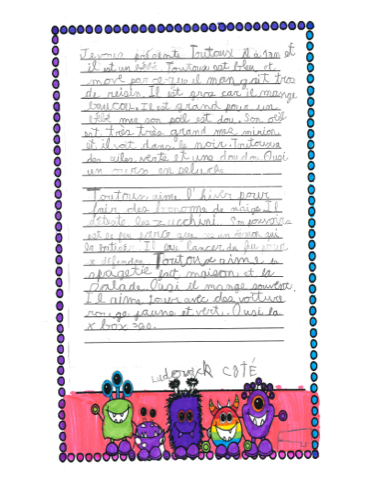 Je vous présente Toutoux il a 1 an et
il est un bébé Toutoux est bleu et
move par ce que il man gait trop
de reisin. Il est gros car il mange
boucou. Il est grand pour un
bébé mes son poil est dou. Son
ont très très grand mes minion
et il voit dans le noir. Toutoux a
des ailes verte et une dou dou. Ousi
un ours en peluche
Toutoux aime l'hiver pour
fair des bonome de neige. Il
déteste les zucchini. Son pouvoir
est le feu parce que
Il peu lancer du feu pour
se défendre. Toutoux aime la
spagetie fait maison et la
salade. Ousi il mange souvent.
Il aime jouer avec des voiture
rouge jaune et vert. Ousi la
x box 360.
Ludovick CÔTÉ